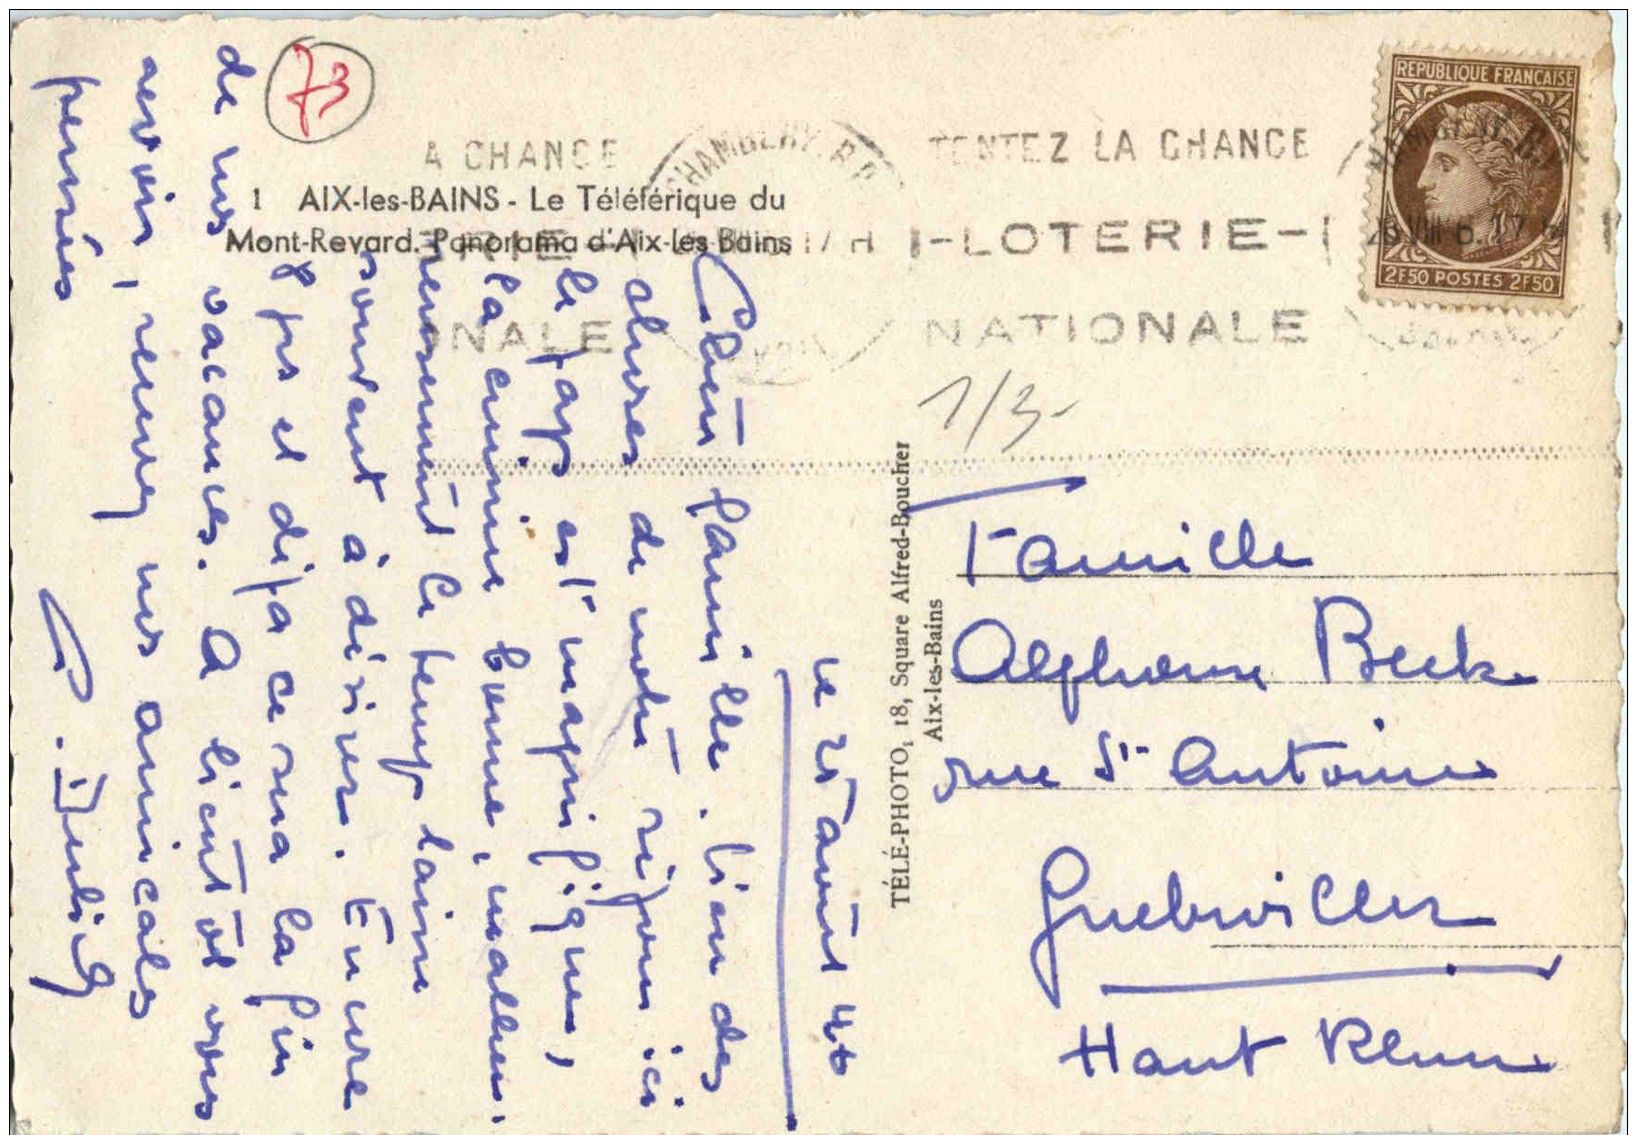 73
A CHANCE
CHAMBERY R.P.
TENTEZ LA CHANCE
1 AIX-les-BAINS - Le Téléférique du
Mont-Revard. Panorama d'Aix-les-Bains
LOTERIE
NALE
NATIONALE
REPUBLIQUE FRANÇAISE
2F50 POSTES 2F50
1/3-
le 25 août 46
Chère famille. Bien des
choses de notre séjour ici
le pays est magnifique,
la cuisine bonne, malheu-
reusement le temps laisse
souvent à désirer. Encore
8 jrs et déjà ce sera la fin
de nos vacances. A bientôt vous
revoir, recevez nos amicales
pensées
TÉLÉ-PHOTO, 18, Square Alfred-Boucher
Aix-les-Bains
Famille
Alphonse Beck
rue St Antoine
Guebwiller
Haut Rhin